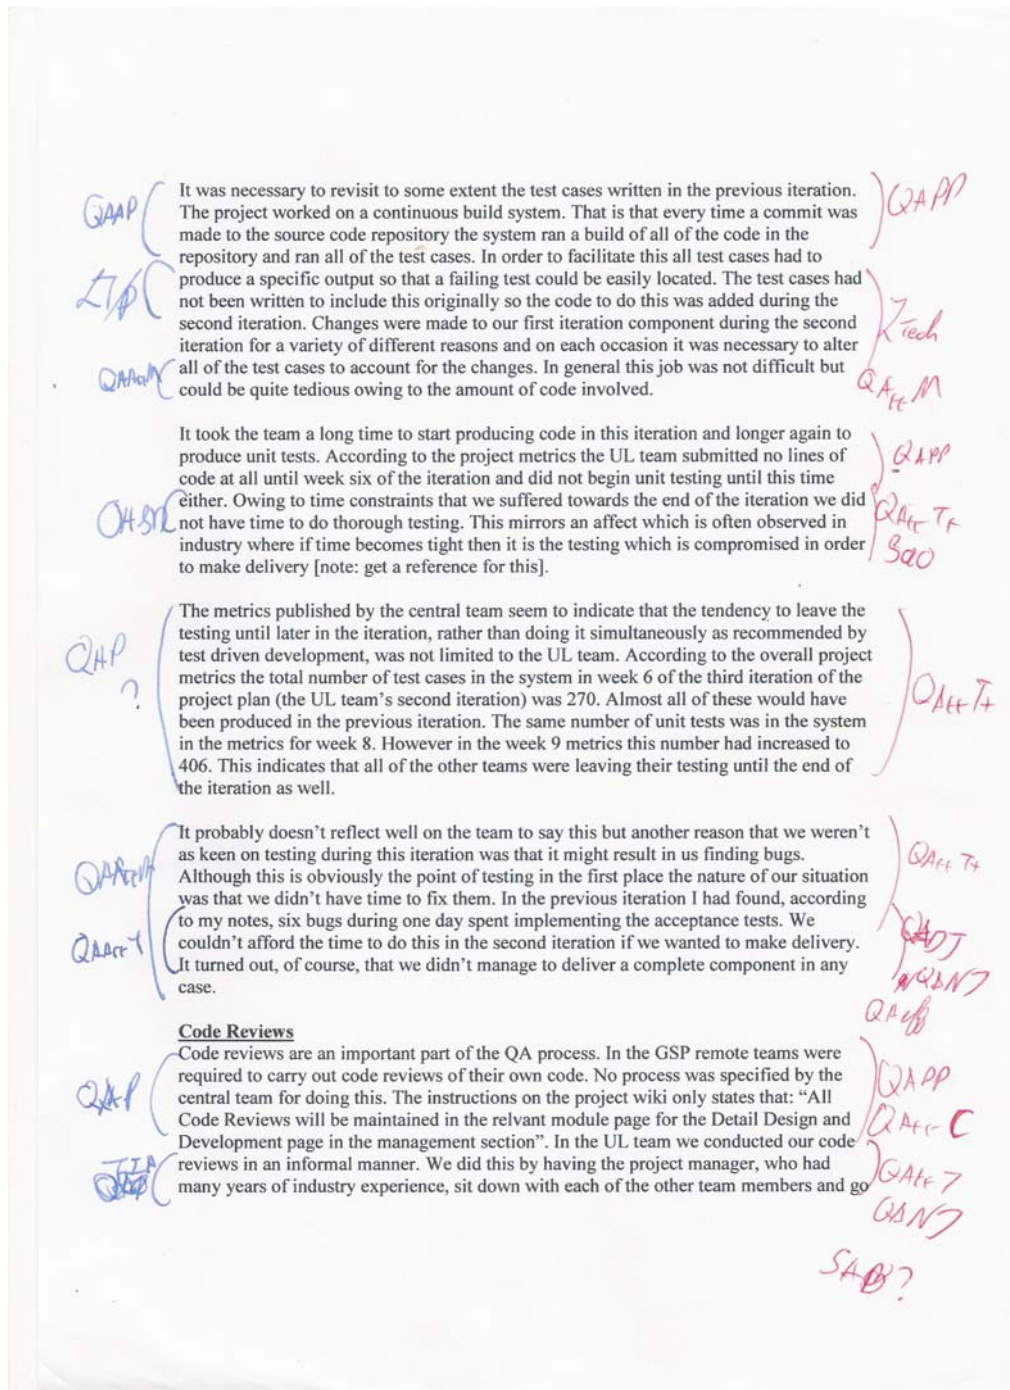 It was necessary to revisit to some extent the test cases written in the previous iteration.
The project worked on a continuous build system. That is that every time a commit was
made to the source code repository the system ran a build of all of the code in the
repository and ran all of the test cases. In order to facilitate this all test cases had to
produce a specific output so that a failing test could be easily located. The test cases had
not been written to include this originally so the code to do this was added during the
second iteration. Changes were made to our first iteration component during the second
iteration for a variety of different reasons and on each occasion it was necessary to alter
all of the test cases to account for the changes. In general this job was not difficult but
could be quite tedious owing to the amount of code involved.
QAAP
QAPP
It took the team a long time to start producing code in this iteration and longer again to
produce unit tests. According to the project metrics the UL team submitted no lines of
code at all until week six of the iteration and did not begin unit testing until this time
either. Owing to time constraints that we suffered towards the end of the iteration we did
not have time to do thorough testing. This mirrors an affect which is often observed in
industry where if time becomes tight then it is the testing which is compromised in order
to make delivery [note: get a reference for this].
QAPP
The metrics published by the central team seem to indicate that the tendency to leave the
testing until later in the iteration, rather than doing it simultaneously as recommended by
test driven development, was not limited to the UL team. According to the overall project
metrics the total number of test cases in the system in week 6 of the third iteration of the
project plan (the UL team's second iteration) was 270. Almost all of these would have
been produced in the previous iteration. The same number of unit tests was in the system
in the metrics for week 8. However in the week 9 metrics this number had increased to
406. This indicates that all of the other teams were leaving their testing until the end of
the iteration as well.
QAP
?
It probably doesn't reflect well on the team to say this but another reason that we weren't
as keen on testing during this iteration was that it might result in us finding bugs.
Although this is obviously the point of testing in the first place the nature of our situation
was that we didn't have time to fix them. In the previous iteration I had found, according
to my notes, six bugs during one day spent implementing the acceptance tests. We
couldn't afford the time to do this in the second iteration if we wanted to make delivery.
It turned out, of course, that we didn't manage to deliver a complete component in any
case.
Code Reviews
Code reviews are an important part of the QA process. In the GSP remote teams were
required to carry out code reviews of their own code. No process was specified by the
central team for doing this. The instructions on the project wiki only states that: “All
Code Reviews will be maintained in the relvant module page for the Detail Design and
Development page in the management section”. In the UL team we conducted our code
reviews in an informal manner. We did this by having the project manager, who had
many years of industry experience, sit down with each of the other team members and go
QAP
QAPP